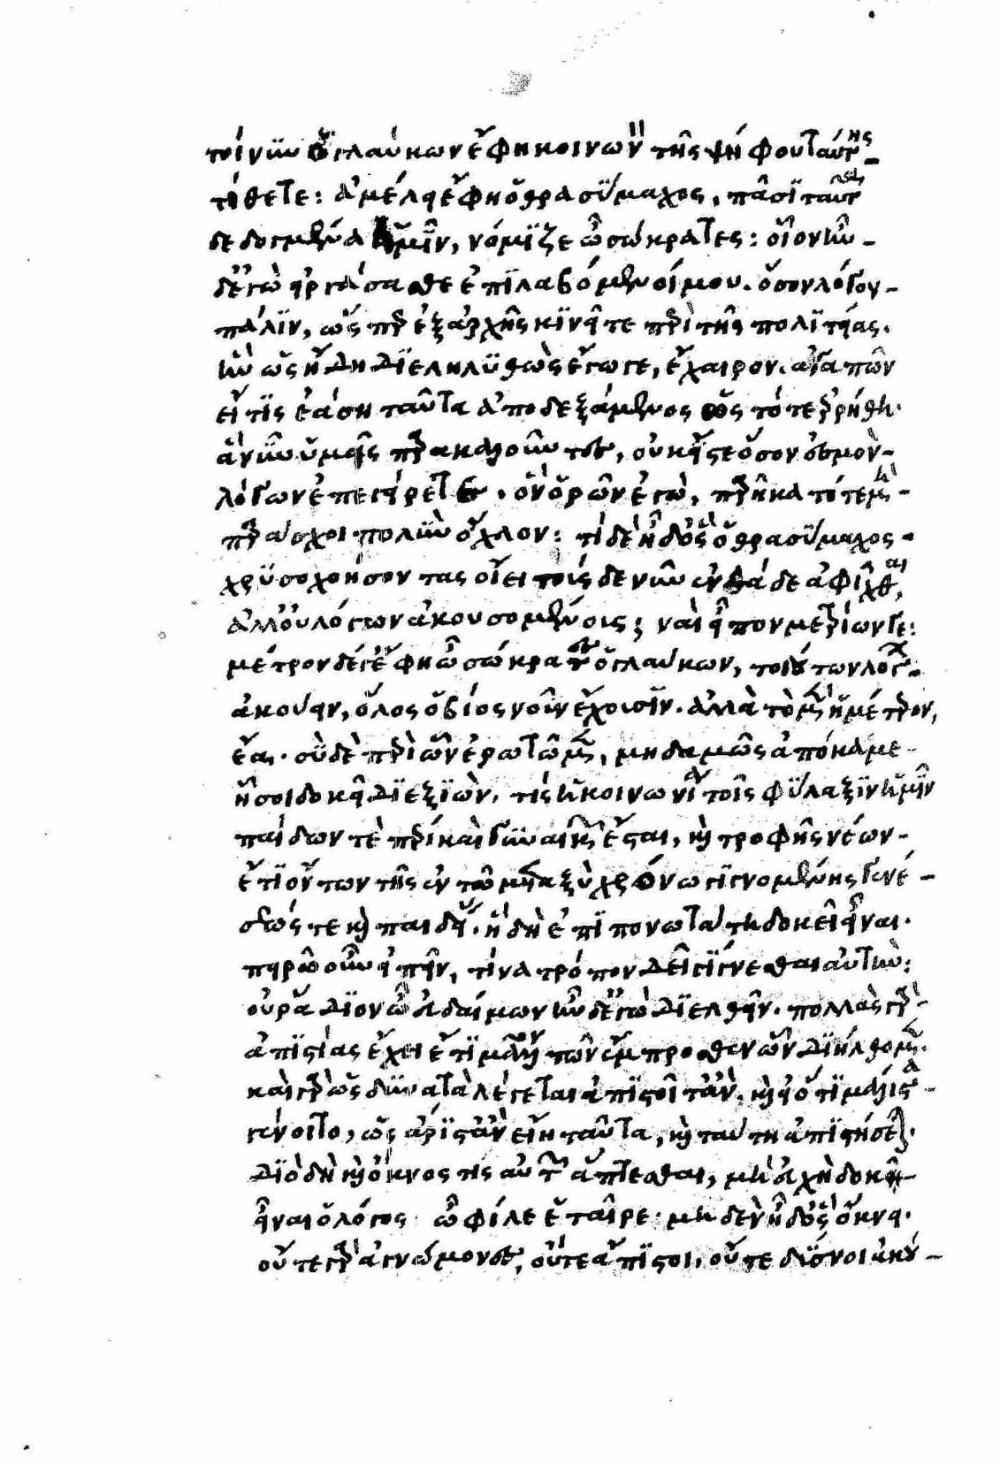 τοίνυν ὁ γλαύκων ἔφη κοινωνὸν τῆς ψήφου ταύτης
τίθετε: ἀμέλει ἔφη ὁ θρασύμαχος, πᾶσι ταῦτα
δεδογμένα ἡμῖν, νόμιζε ὦ σώκρατες: οἷον ἦν
δ' ἐγὼ εἰργάσασθε ἐπιλαβόμενοί μου. ὅσον λόγον
πάλιν, ὥσπερ ἐξ ἀρχῆς κινεῖτε περὶ τῆς πολιτείας.
ἣν ὡς ἤδη διεληλυθὼς ἔγωγε, ἔχαιρον. ἀγαπῶν
εἴ τις ἐάσοι ταῦτα ἀποδεξάμενος ὡς τότε ἐρρήθη.
ἃ νῦν ὑμεῖς παρακαλοῦντες, οὐκ ἴστε ὅσον ἑσμὸν
λόγων ἐπεγείρετε. ὃν ὁρῶν ἐγὼ, παρῆκα τότε μὴ
παράσχοι πολὺν ὄχλον: τί δὲ ἦ δ' ὃς ὁ θρασύμαχος
χρυσοχοήσοντας οἴει τούσδε νῦν ἐνθάδε ἀφῖχθαι,
ἀλλ' οὐ λόγων ἀκουσομένους; ναὶ εἶπον μετρίων γε:
μέτρον δέ γ' ἔφη ὦ σώκρατες ὁ γλαύκων, τοιούτων λόγων
ἀκούειν, ὅλος ὁ βίος νοῦν ἔχουσιν. ἀλλὰ τὸ μὲν ἡμέτερον,
ἔα. σὺ δὲ περὶ ὧν ἐρωτῶμεν, μηδαμῶς ἀπόκαμε
ᾗ σοι δοκεῖ διεξιὼν, τίς ἡ κοινωνία τοῖς φύλαξιν ἡμῖν
παίδων τε πέρι καὶ γυναικῶν ἔσται, καὶ τροφῆς νέων
ἔτι ὄντων τῆς ἐν τῷ μεταξὺ χρόνῳ γιγνομένης γενέ-
σεώς τε καὶ παιδείας. ἣ δὴ ἐπιπονωτάτη δοκεῖ εἶναι.
πειρῶ οὖν εἰπεῖν, τίνα τρόπον δεῖ γίγνεσθαι αὐτήν:
οὐ ῥᾴδιον ὦ εὔδαιμον ἦν δ' ἐγὼ διελθεῖν. πολλὰς γὰρ
ἀπιστίας ἔχει ἔτι μᾶλλον τῶν ἔμπροσθεν ὧν διήλθομεν.
καὶ γὰρ ὡς δυνατὰ λέγεται ἀπιστοῖτ' ἂν, καὶ εἰ ὅτι μάλιστα
γένοιτο, ὡς ἄριστ' ἂν εἴη ταῦτα, καὶ ταύτῃ ἀπιστήσεται.
διὸ δὴ καὶ ὄκνος τις αὐτῶν ἅπτεσθαι, μὴ εὐχὴ δοκῇ
εἶναι ὁ λόγος ὦ φίλε ἑταῖρε: μηδὲν ἦ δ' ὃς ὄκνει.
οὔτε γὰρ ἀγνώμονες, οὔτε ἄπιστοι, οὔτε δύσνοι ἀκου-